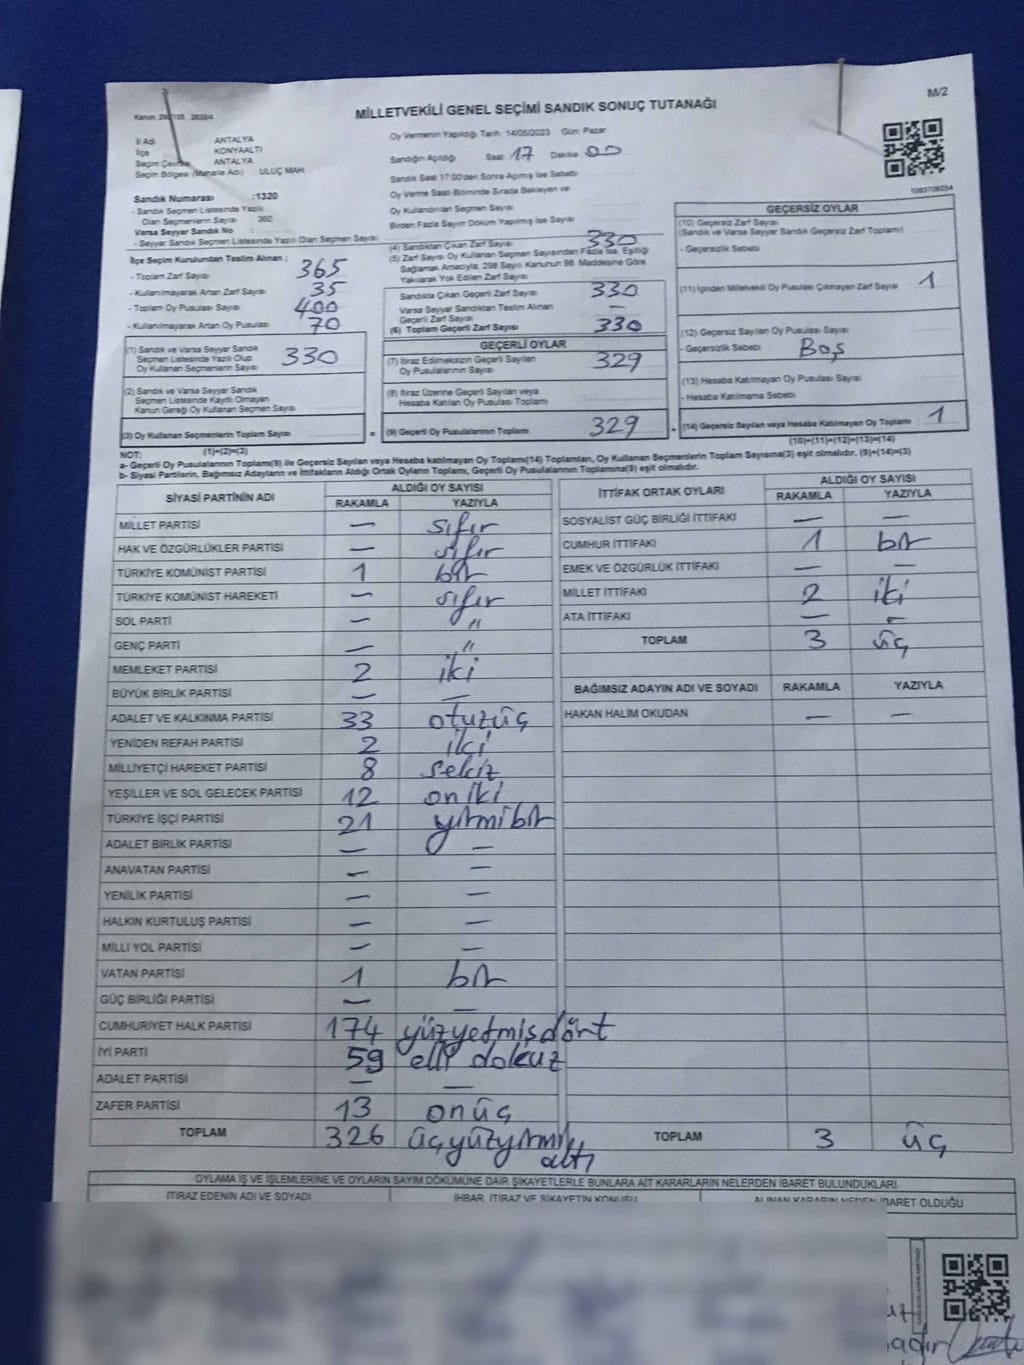 M/2
MİLLETVEKİLİ GENEL SEÇİMİ SANDIK SONUÇ TUTANAĞI
İl Adı ANTALYA
İlçe KONYAALTI
Seçim Çevresi ANTALYA
Seçim Bölgesi (Mahalle Adı) ULUÇ MAH
Sandık Numarası :1320
- Sandık Seçmen Listesinde Yazılı
Olan Seçmenlerin Sayısı 360
Varsa Seyyar Sandık No :
- Seyyar Sandık Seçmen Listesinde Yazılı Olan Seçmen Sayısı
İlçe Seçim Kurulundan Teslim Alınan ;
- Toplam Zarf Sayısı 365
- Kullanılmayarak Artan Zarf Sayısı 35
- Toplam Oy Pusulası Sayısı 400
- Kullanılmayarak Artan Oy Pusulası 70
(1) Sandık ve Varsa Seyyar Sandık
Seçmen Listesinde Yazılı Olup
Oy Kullanan Seçmenlerin Sayısı 330
(2) Sandık ve Varsa Seyyar Sandık
Seçmen Listesinde Kayıtlı Olmayan
Kanun Gereği Oy Kullanan Seçmen Sayısı
(3) Oy Kullanan Seçmenlerin Toplam Sayısı
(1)+(2)=(3)
Oy Vermenin Yapıldığı Tarih 14/05/2023 Gün Pazar
Sandığın Açıldığı Saat 17 Dakika 00
Sandık Saat 17:00'den Sonra Açılmış İse Sebebi
Oy Verme Saati Bitiminde Sırada Bekleyen ve
Oy Kullandırılan Seçmen Sayısı
Birden Fazla Sayım Döküm Yapılmış İse Sayısı
(4) Sandıktan Çıkan Zarf Sayısı 330
(5) Zarf Sayısı Oy Kullanan Seçmen Sayısından Fazla İse, Eşitliği
Sağlamak Amacıyla, 298 Sayılı Kanunun 98. Maddesine Göre
Yakılarak Yok Edilen Zarf Sayısı
Sandıkta Çıkan Geçerli Zarf Sayısı 330
Varsa Seyyar Sandıktan Teslim Alınan
Geçerli Zarf Sayısı —
(6) Toplam Geçerli Zarf Sayısı 330
GEÇERLİ OYLAR
(7) İtiraz Edilmeksizin Geçerli Sayılan
Oy Pusulalarının Sayısı 329
(8) İtiraz Üzerine Geçerli Sayılan veya
Hesaba Katılan Oy Pusulası Toplamı
= (9) Geçerli Oy Pusulalarının Toplamı 329
1083706254
GEÇERSİZ OYLAR
(10) Geçersiz Zarf Sayısı
(Sandık ve Varsa Seyyar Sandık Geçersiz Zarf Toplamı)
- Geçersizlik Sebebi
(11) İçinden Milletvekili Oy Pusulası Çıkmayan Zarf Sayısı 1
(12) Geçersiz Sayılan Oy Pusulası Sayısı
- Geçersizlik Sebebi Boş
(13) Hesaba Katılmayan Oy Pusulası Sayısı
- Hesaba Katılmama Sebebi
+ (14) Geçersiz Sayılan veya Hesaba Katılmayan Oy Toplamı 1
(10)+(11)+(12)+(13)=(14)
NOT:
a- Geçerli Oy Pusulalarının Toplamı(9) ile Geçersiz Sayılan veya Hesaba katılmayan Oy Toplamı(14) Toplamları, Oy Kullanan Seçmenlerin Toplam Sayısına(3) eşit olmalıdır. (9)+(14)=(3)
b- Siyasi Partilerin, Bağımsız Adayların ve İttifakların Aldığı Ortak Oyların Toplamı, Geçerli Oy Pusulalarının Toplamına(9) eşit olmalıdır.
SİYASİ PARTİNİN ADI ALDIĞI OY SAYISI
RAKAMLA YAZIYLA
MİLLET PARTİSİ — sıfır
HAK VE ÖZGÜRLÜKLER PARTİSİ — sıfır
TÜRKİYE KOMÜNİST PARTİSİ 1 bir
TÜRKİYE KOMÜNİST HAREKETİ — sıfır
SOL PARTİ — "
GENÇ PARTİ — "
MEMLEKET PARTİSİ 2 iki
BÜYÜK BİRLİK PARTİSİ — —
ADALET VE KALKINMA PARTİSİ 33 otuzüç
YENİDEN REFAH PARTİSİ 2 iki
MİLLİYETÇİ HAREKET PARTİSİ 8 sekiz
YEŞİLLER VE SOL GELECEK PARTİSİ 12 oniki
TÜRKİYE İŞÇİ PARTİSİ 21 yirmibir
ADALET BİRLİK PARTİSİ — —
ANAVATAN PARTİSİ — —
YENİLİK PARTİSİ — —
HALKIN KURTULUŞ PARTİSİ — —
MİLLİ YOL PARTİSİ — —
VATAN PARTİSİ 1 bir
GÜÇ BİRLİĞİ PARTİSİ — —
CUMHURİYET HALK PARTİSİ 174 yüzyetmişdört
İYİ PARTİ 59 elli dokuz
ADALET PARTİSİ — —
ZAFER PARTİSİ 13 onüç
TOPLAM 326 üçyüzyirmi
altı
İTTİFAK ORTAK OYLARI ALDIĞI OY SAYISI
RAKAMLA YAZIYLA
SOSYALİST GÜÇ BİRLİĞİ İTTİFAKI — —
CUMHUR İTTİFAKI 1 bir
EMEK VE ÖZGÜRLÜK İTTİFAKI — —
MİLLET İTTİFAKI 2 iki
ATA İTTİFAKI — —
TOPLAM 3 üç
BAĞIMSIZ ADAYIN ADI VE SOYADI RAKAMLA YAZIYLA
HAKAN HALİM OKUDAN — —
TOPLAM 3 üç
OYLAMA İŞ VE İŞLEMLERİNE VE OYLARIN SAYIM DÖKÜMÜNE DAİR ŞİKAYETLERLE BUNLARA AİT KARARLARIN NELERDEN İBARET BULUNDUKLARI
İTİRAZ EDENİN ADI VE SOYADI İHBAR, İTİRAZ VE ŞİKAYETİN KONUSU ALINAN KARARIN NEDEN İBARET OLDUĞU